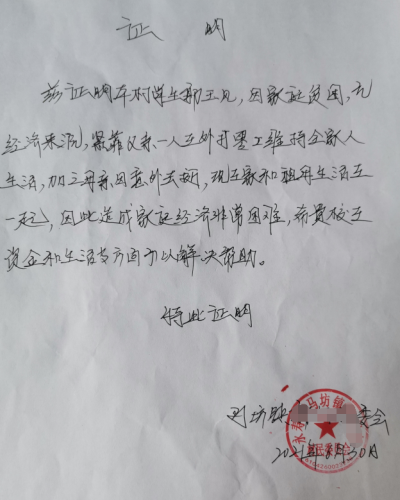 证 明
兹证明本村学生郭王见,因家庭贫困,无
经济来源,紧靠父亲一人在外打零工维持全家人
生活,加之母亲因意外去世,现在家和祖母生活在
一起,因此造成家庭经济非常困难,希贵校在
资金和生活等方面予以解决帮助。
特此证明
马坊镇
委会
2021年8月30日